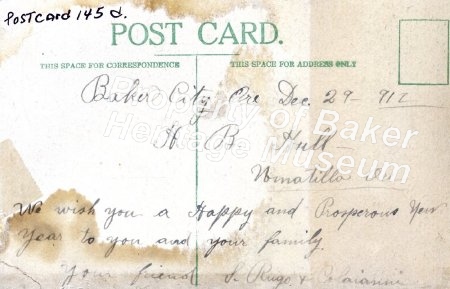 Postcard 145 d.
POST CARD.
THIS SPACE FOR CORRESPONDENCE
THIS SPACE FOR ADDRESS ONLY
Baker City Ore Dec. 29 - 912
Property of Baker
Heritage Museum
H B Hull
Umatilla Or
We wish you a Happy and Prosperous New
Year to you and your family.
Your friend